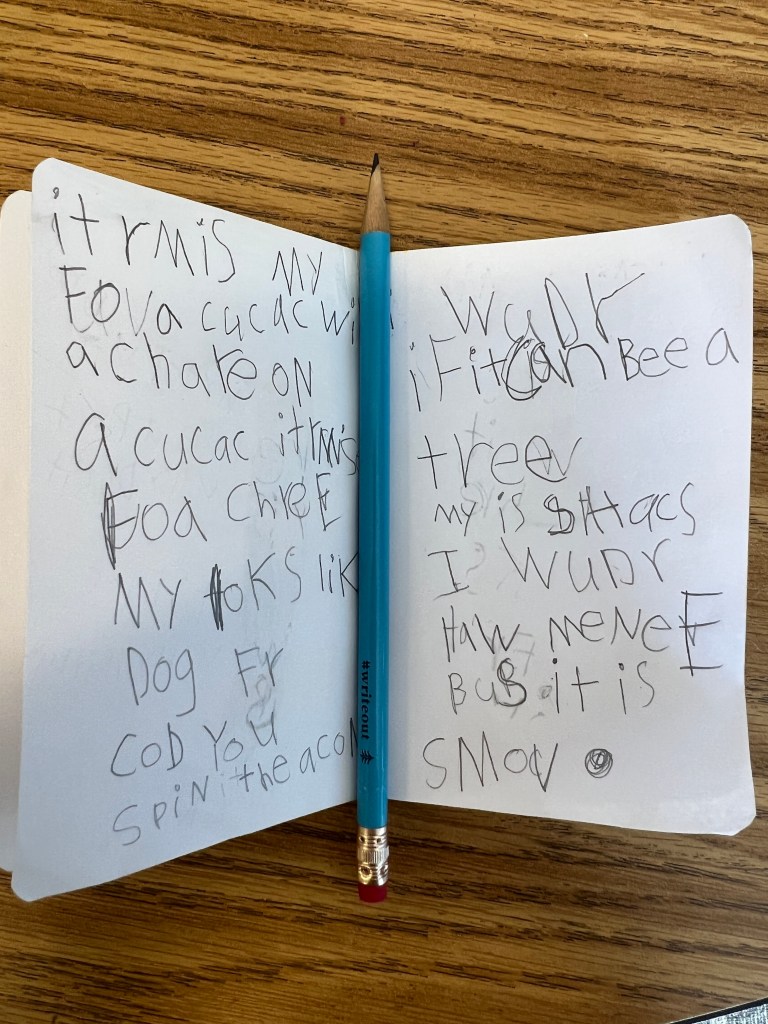 it rmis my
Fova cucac wi
a chare on
a cucac it rmis
Foa chreE
MY foKS liK
Dog Fr
coD You
SPiN the acoN
#writeout
wuDr
iF it can Bee a
tree
my is SHacS
I wuDr
Haw meNeE
BuS it is
SMOV